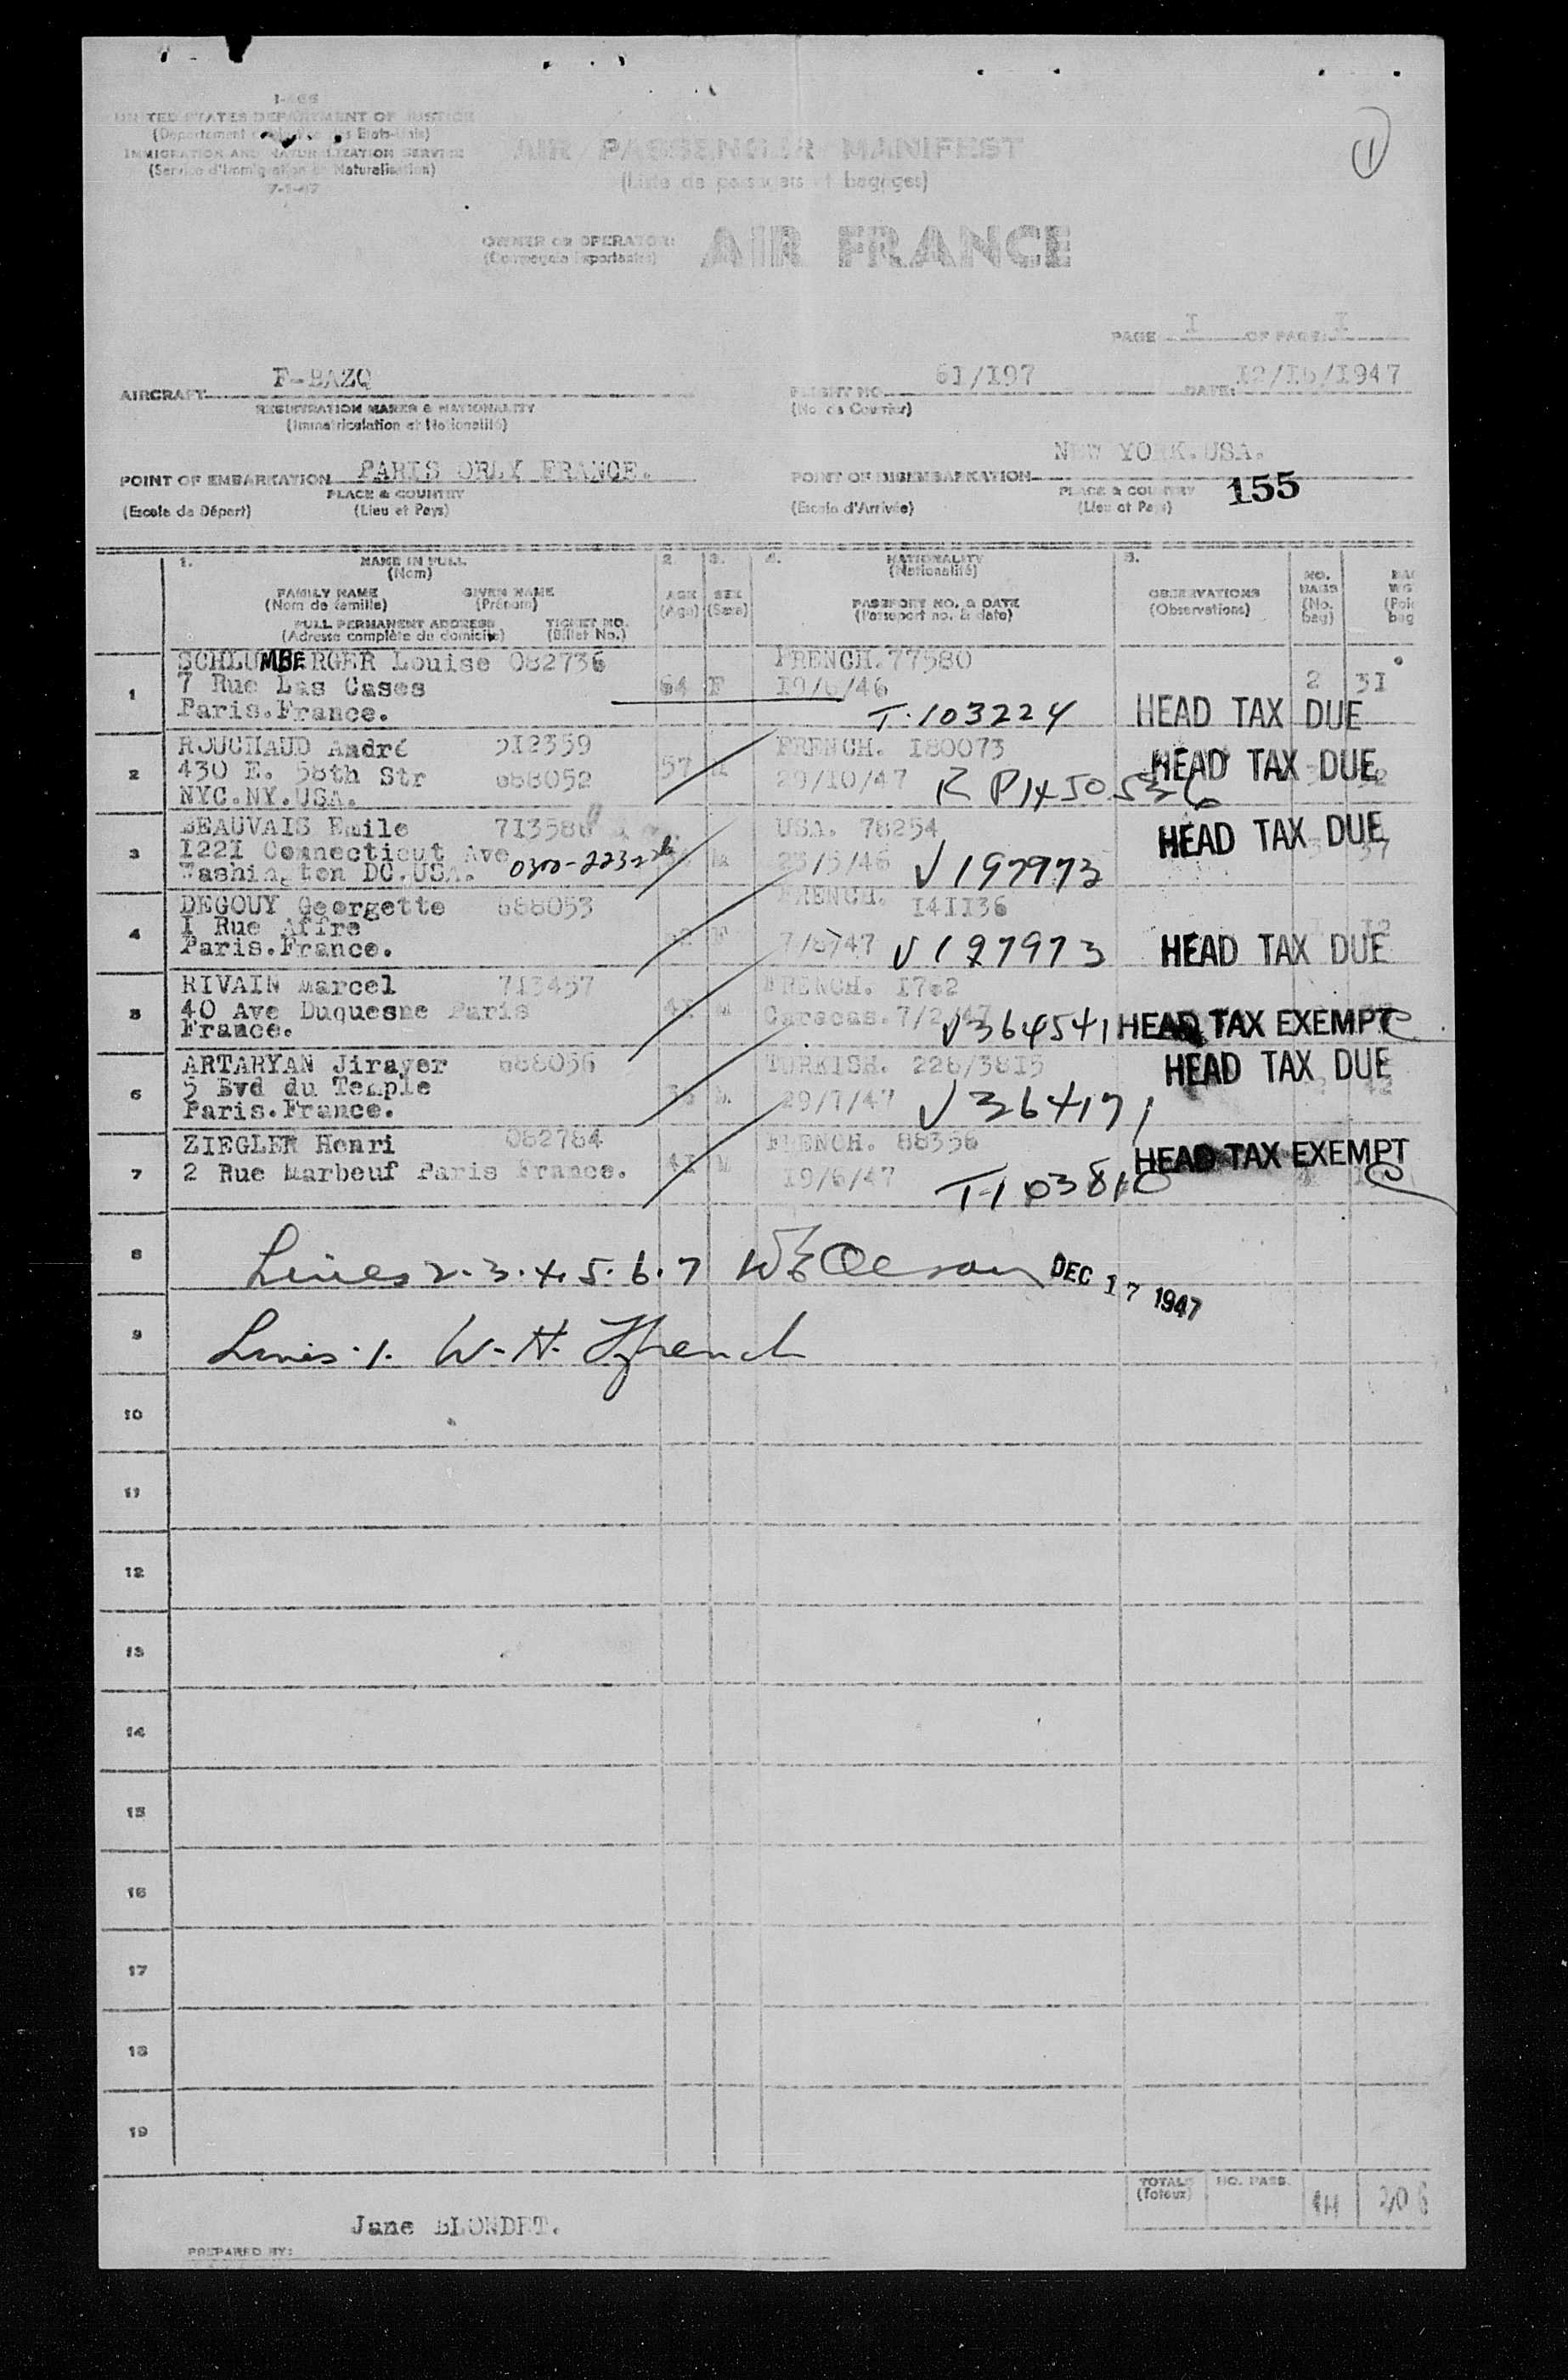 UNITED STATES DEPARTMENT OF JUSTICE
IMMIGRATION AND NATURALIZATION SERVICE
(Service d'Immigration et Naturalisation)
7-1-47
AIR PASSENGER MANIFEST
(Liste de passagers et bagages)
OWNER OR OPERATOR:
AIR FRANCE
1
PAGE I OF PAGE: I
AIRCRAFT F-BAZQ
REGISTRATION MARKS & NATIONALITY
(Immatriculation et Nationalité)
FLIGHT NO. 61/I97
(No. de Courrier)
DATE: I2/I6/I947
POINT OF EMBARKATION PARIS ORLY FRANCE.
PLACE & COUNTRY
(Escale de Départ) (Lieu et Pays)
POINT OF DISEMBARKATION NEW YORK.USA.
PLACE & COUNTRY
(Escale d'Arrivée) (Lieu et Pays)
155
1. NAME IN FULL
(Nom)
FAMILY NAME GIVEN NAME
(Nom de famille) (Prénom)
FULL PERMANENT ADDRESS TICKET NO.
(Adresse complète du domicile) (Billet No.)
2. AGE
(Age)
3. SEX
(Sexe)
4. NATIONALITY
(Nationalité)
PASSPORT NO. & DATE
(Passeport no. & date)
5. OBSERVATIONS
(Observations)
NO. BAGS
(No. bag)
1 SCHLUMBERGER Louise 082736 64 F FRENCH.77580 2 3I
7 Rue Las Cases I9/6/46
Paris.France. T-103224 HEAD TAX DUE
2 ROUCHAUD André 5I2359 57 FRENCH. I80073 HEAD TAX DUE
430 E. 58th Str 688052 29/IO/47 R P 1450536
NYC.NY.USA.
3 BEAUVAIS Emile USA. 78254 HEAD TAX DUE
I22I Connecticut Ave M 23/5/46 V 197973
Washington DC.USA. 0300-2232
4 DEGOUY Georgette 688053 F FRENCH. I4II36
I Rue Affre
Paris.France. V 197973 HEAD TAX DUE
5 RIVAIN Marcel 7I3457 4I M FRENCH.
40 Ave Duquesne Paris Caracas.
France. V364541 HEAD TAX EXEMPT
6 ARTARYAN Jirayer 688056 TURKISH. 226/38I5 HEAD TAX DUE
5 Bvd du Temple 29/7/47
Paris.France. V 364171
7 ZIEGLER Henri 082784 4I M FRENCH. 88356 HEAD TAX EXEMPT
2 Rue Marbeuf Paris France. I9/6/47 T-103810
8 Lines 2.3.4.5.6.7 DEC 17 1947
9 Lines.1. W.H. Ffrench
10
11
12
13
14
15
16
17
18
19
TOTALS NO. PASS.
(Totaux)
Jane BLONDET.
PREPARED BY: